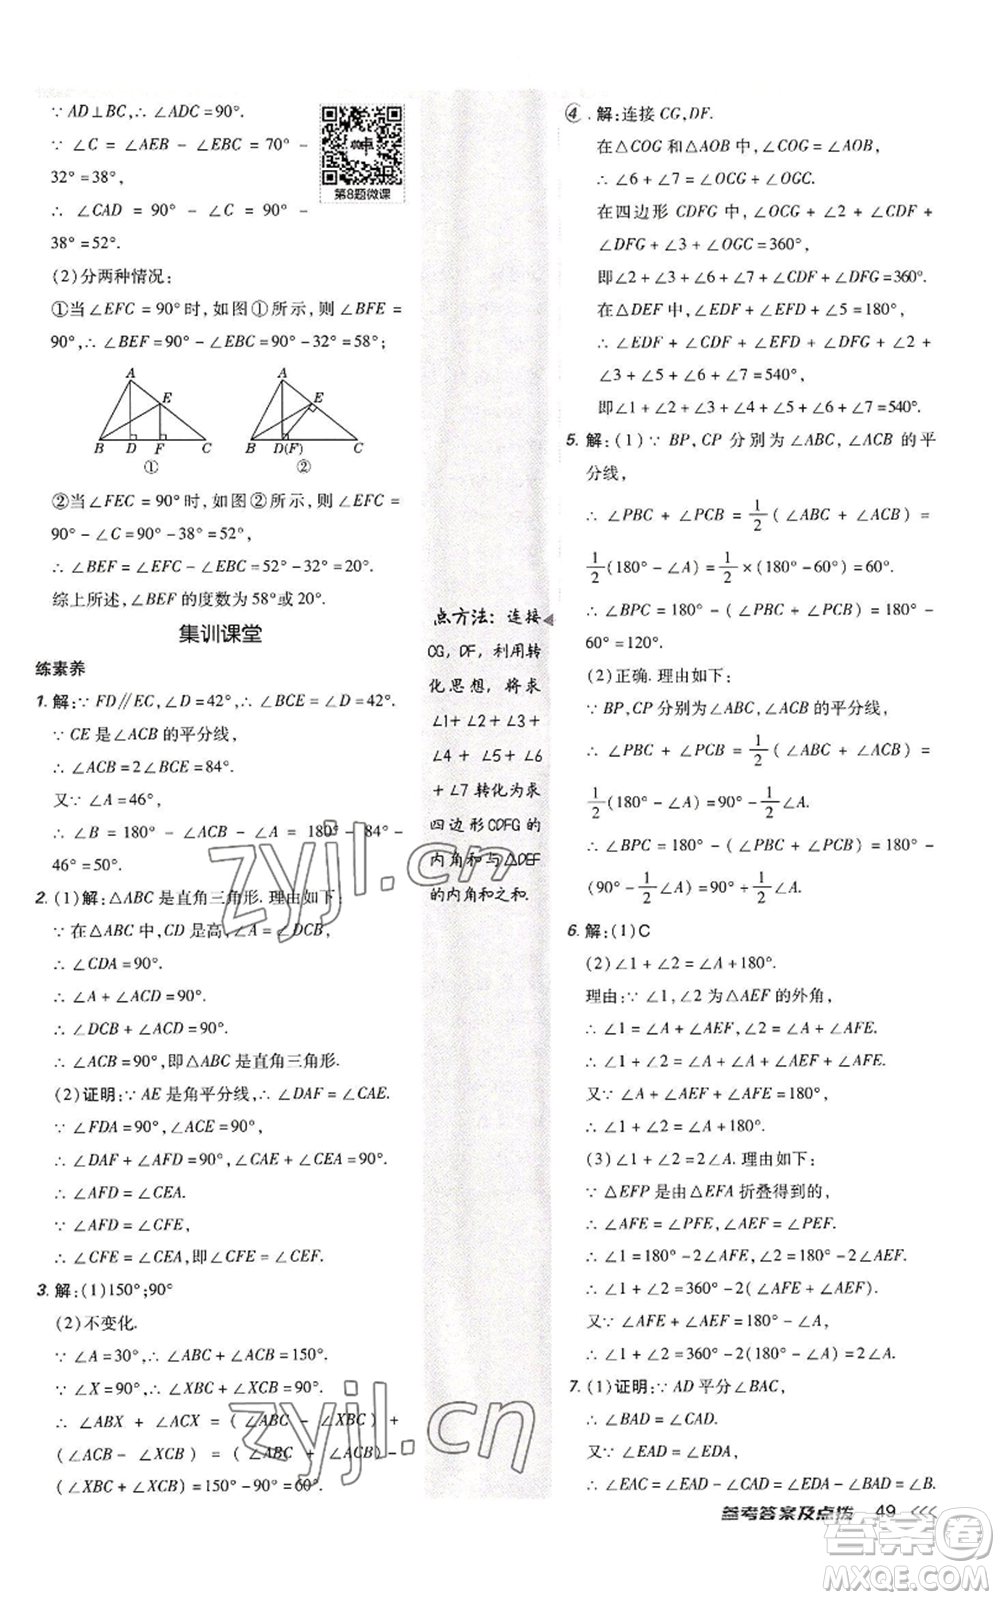 ∵ AD⊥BC,∴ ∠ADC=90°.
∵ ∠C=∠AEB-∠EBC=70°-
32°=38°,
∴ ∠CAD=90°-∠C=90°-
38°=52°.
第8题微课
(2)分两种情况:
①当∠EFC=90°时,如图①所示,则∠BFE=
90°,∴ ∠BEF=90°-∠EBC=90°-32°=58°;
A
E
B D F C
①
A
E
B D(F) C
②
②当∠FEC=90°时,如图②所示,则∠EFC=
90°-∠C=90°-38°=52°,
∴ ∠BEF=∠EFC-∠EBC=52°-32°=20°.
综上所述,∠BEF的度数为58°或20°.
集训课堂
练素养
1. 解:∵ FD∥EC,∠D=42°,∴ ∠BCE=∠D=42°.
∵ CE是∠ACB的平分线,
∴ ∠ACB=2∠BCE=84°.
又∵ ∠A=46°,
∴ ∠B=180°-∠ACB-∠A=180°-84°-
46°=50°.
2. (1)解:△ABC是直角三角形.理由如下:
∵ 在△ABC中,CD是高,∠A=∠DCB,
∴ ∠CDA=90°.
∴ ∠A+∠ACD=90°.
∴ ∠DCB+∠ACD=90°.
∴ ∠ACB=90°,即△ABC是直角三角形.
(2)证明:∵ AE是角平分线,∴ ∠DAF=∠CAE.
∵ ∠FDA=90°,∠ACE=90°,
∴ ∠DAF+∠AFD=90°,∠CAE+∠CEA=90°.
∴ ∠AFD=∠CEA.
∵ ∠AFD=∠CFE,
∴ ∠CFE=∠CEA,即∠CFE=∠CEF.
3. 解:(1)150°;90°
(2)不变化.
∵ ∠A=30°,∴ ∠ABC+∠ACB=150°.
∵ ∠X=90°,∴ ∠XBC+∠XCB=90°.
∴ ∠ABX+∠ACX=(∠ABC-∠XBC)+
(∠ACB-∠XCB)=(∠ABC+∠ACB)-
(∠XBC+∠XCB)=150°-90°=60°.
点方法:连接
CG,DF,利用转
化思想,将求
∠1+∠2+∠3+
∠4+∠5+∠6
+∠7转化为求
四边形CDFG的
内角和与△DEF
的内角和之和.
4. 解:连接CG,DF.
在△COG和△AOB中,∠COG=∠AOB,
∴ ∠6+∠7=∠OCG+∠OGC.
在四边形CDFG中,∠OCG+∠2+∠CDF+
∠DFG+∠3+∠OGC=360°,
即∠6+∠7+∠2+∠CDF+∠DFG+∠3=360°.
在△DEF中,∠EDF+∠EFD+∠5=180°,
∴ ∠EDF+∠CDF+∠EFD+∠DFG+∠2+
∠3+∠5+∠6+∠7=540°,
即∠1+∠2+∠3+∠4+∠5+∠6+∠7=540°.
5. 解:(1)∵ BP,CP分别为∠ABC,∠ACB的平
分线,
∴ ∠PBC+∠PCB=1/2(∠ABC+∠ACB)=
1/2(180°-∠A)=1/2×(180°-60°)=60°.
∴ ∠BPC=180°-(∠PBC+∠PCB)=180°-
60°=120°.
(2)正确.理由如下:
∵ BP,CP分别为∠ABC,∠ACB的平分线,
∴ ∠PBC+∠PCB=1/2(∠ABC+∠ACB)=
1/2(180°-∠A)=90°-1/2∠A.
∴ ∠BPC=180°-(∠PBC+∠PCB)=180°-
(90°-1/2∠A)=90°+1/2∠A.
6. 解:(1)C
(2)∠1+∠2=∠A+180°.
理由:∵ ∠1,∠2为△AEF的外角,
∴ ∠1=∠A+∠AEF,∠2=∠A+∠AFE.
又∵ ∠A+∠AEF+∠AFE=180°,
∴ ∠1+∠2=∠A+180°.
(3)∠1+∠2=2∠A.理由如下:
∵ △EFP是由△EFA折叠得到的,
∴ ∠AFE=∠PFE,∠AEF=∠PEF.
∴ ∠1=180°-2∠AEF,∠2=180°-2∠AFE.
∴ ∠1+∠2=360°-2(∠AFE+∠AEF).
又∵ ∠AFE+∠AEF=180°-∠A,
∴ ∠1+∠2=360°-2(180°-∠A)=2∠A.
7. (1)证明:∵ AD平分∠BAC,
∴ ∠BAD=∠CAD.
又∵ ∠EAD=∠EDA,
∴ ∠EAC=∠EAD-∠CAD=∠EDA-∠BAD=∠B.
参考答案及点拨 49
zyjl.cn
zyjl.cn
答案圈
MXQE.COM